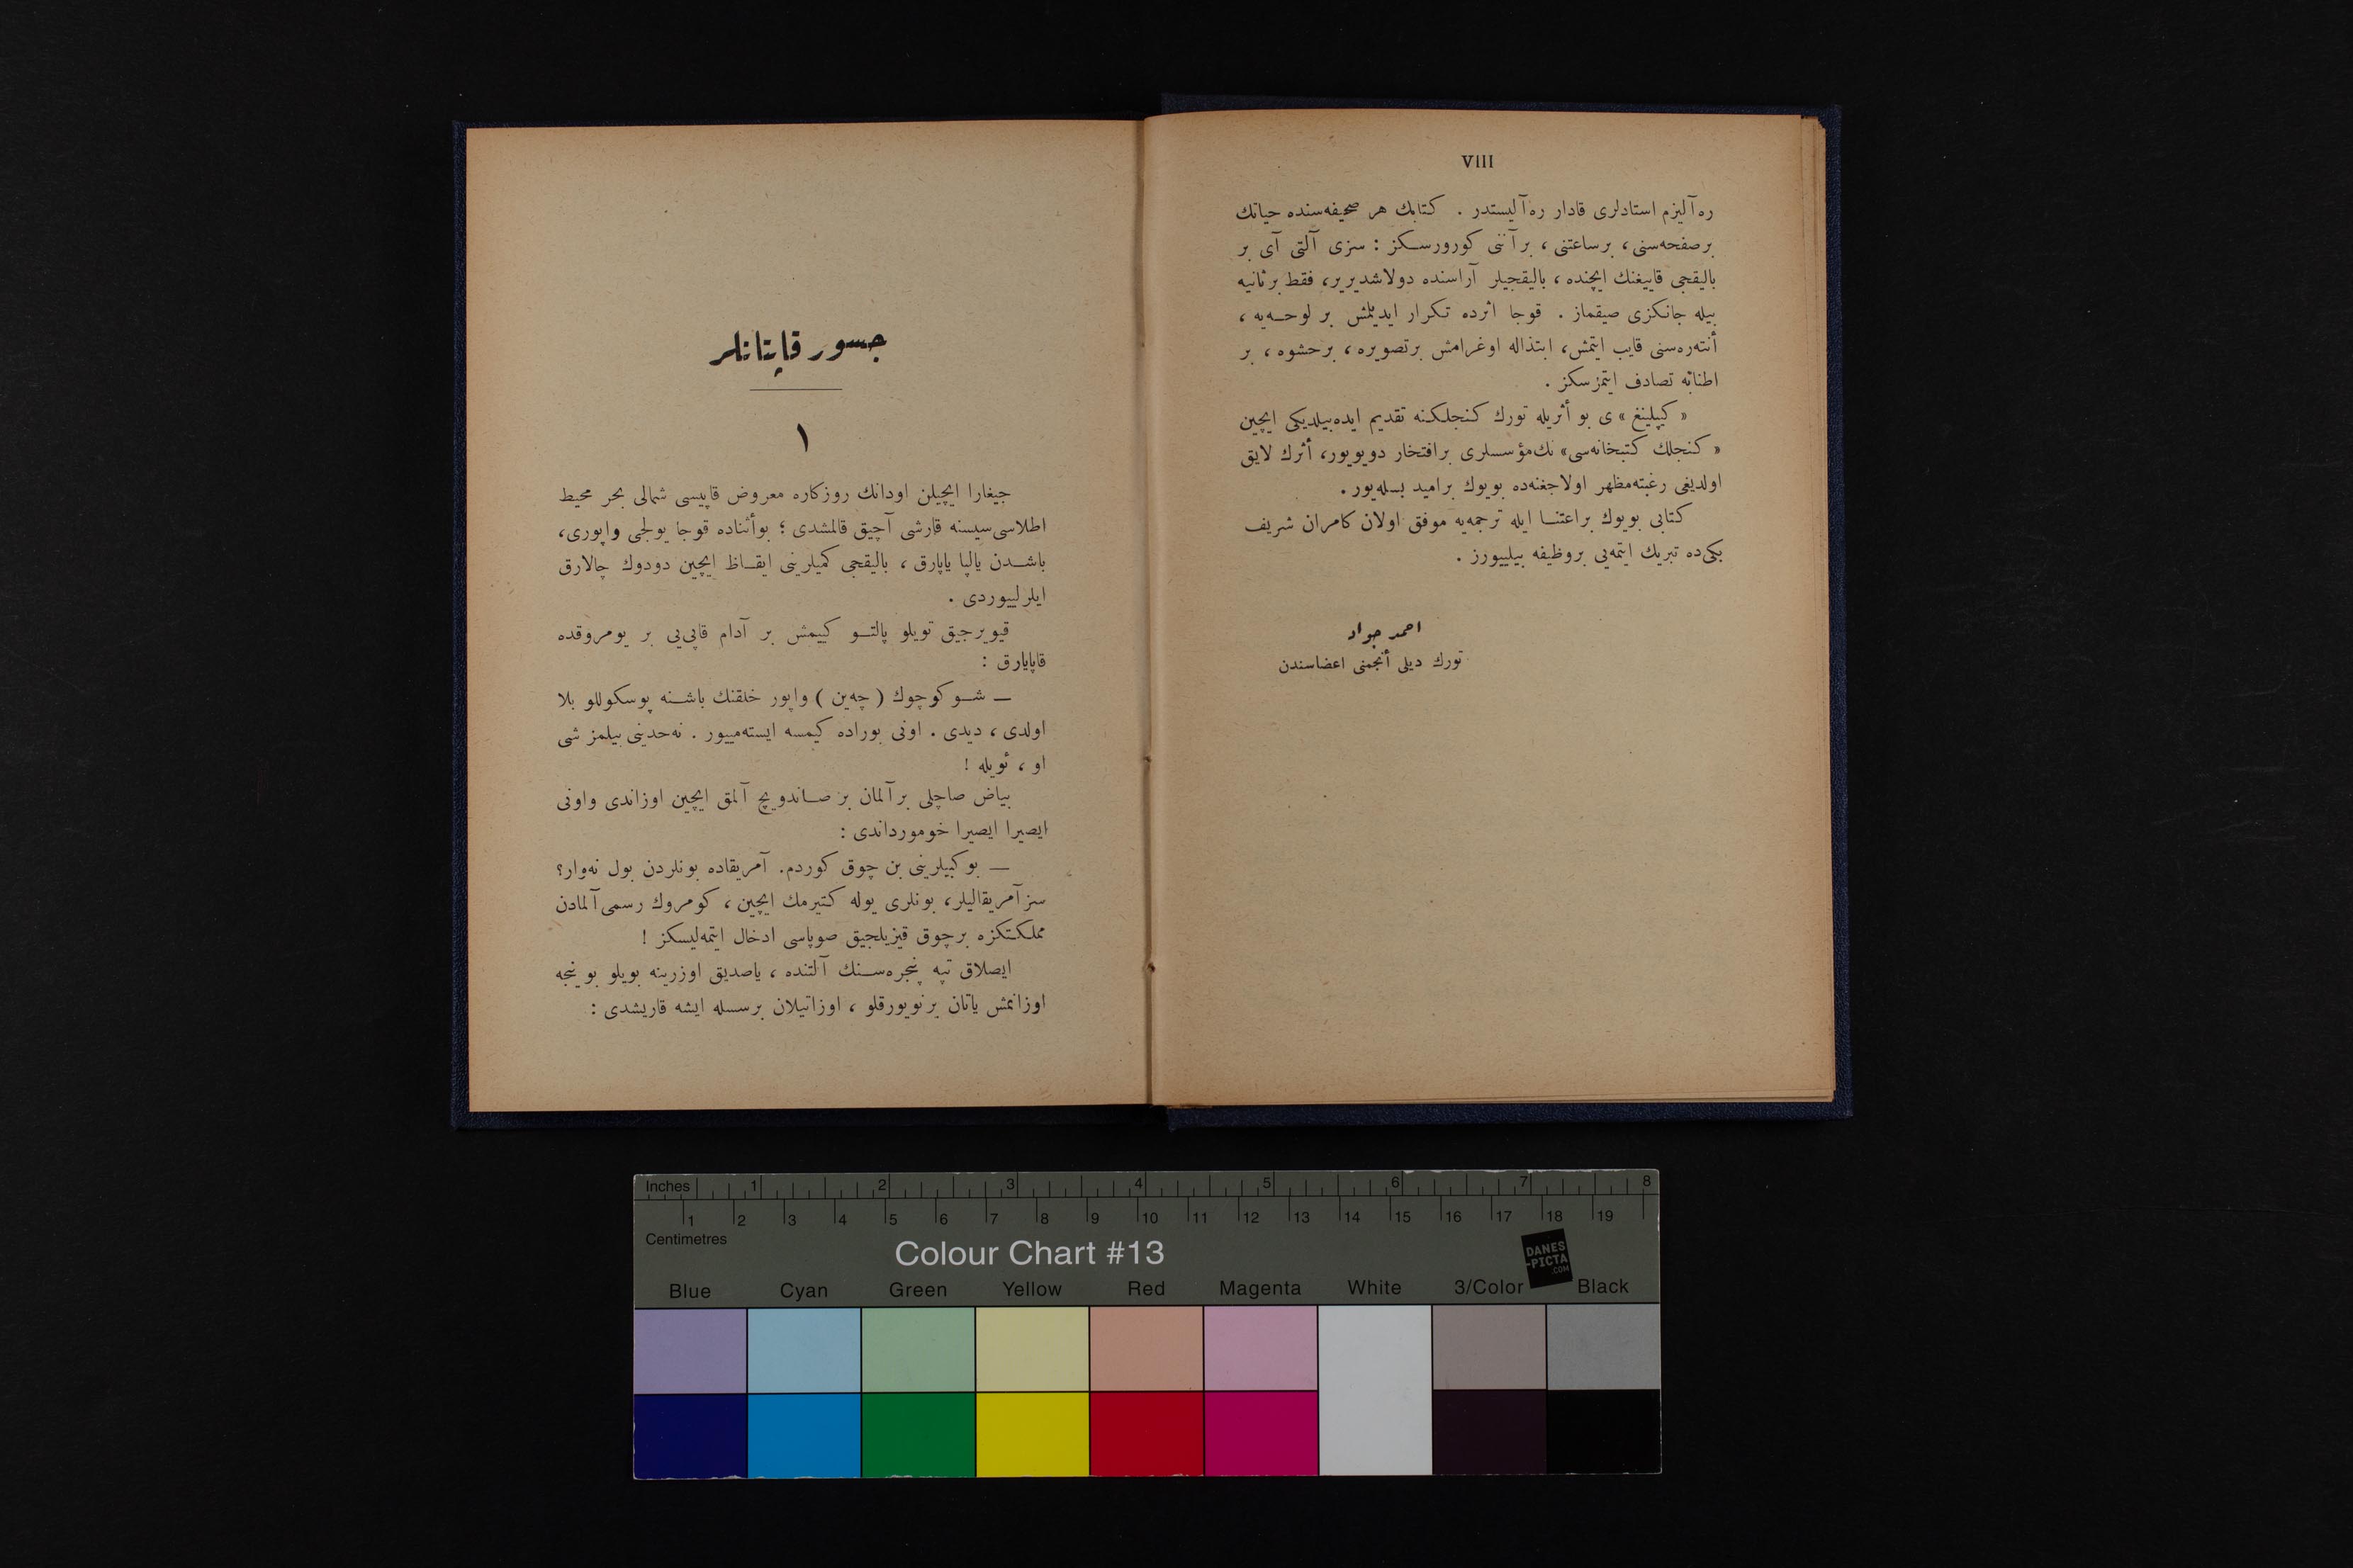 VIII
ره‌آلیزم استادلری قادار ره‌آلیستدر . کتابك هر صحیفه‌سنده حیاتك
برصفحه‌سنی، برساعتنی، برآننی کورورسکز : سزی آلتی آی بر
بالیقجی قاییغنك ایچنده، بالیقجیلر آراسنده دولاشدیریر، فقط برثانیه
بیله جانکزی صیقماز . قوجا اثرده تکرار ایدیلمش بر لوحه‌یه،
أنته‌ره‌سنی قایب ایتمش، ابتذاله اوغرامش برتصویره، برحشوه، بر
اطنابه تصادف ایتمزسکز .
« کیپلینغ » ی بو أثریله تورك کنجلکنه تقدیم ایده‌بیلدیکی ایچین
« کنجلك کتبخانه‌سی» نك مؤسسلری برافتخار دویویور، أثرك لایق
اولدیغی رغبته‌مظهر اولاجغنه‌ده بویوك برامید بسله‌یور .
کتابی بویوك براعتنا ایله ترجمه‌یه موفق اولان کامران شریف
بکی‌ده تبریك ایتمه‌یی بروظیفه بیلییورز .
احمد جواد
تورك دیلی أنجمنی اعضاسندن
جسور قاپتانلر
١
جیغارا ایچیلن اودانك روزکاره معروض قاپیسی شمالی بحر محیط
اطلاسی‌سیسنه قارشی آچیق قالمشدی؛ بوأثناده قوجا یولجی واپوری،
باشدن یالپا یاپارق، بالیقجی کمیلرینی ایقاظ ایچین دودوك چالارق
ایلرلییوردی .
قیویرجیق تویلو پالتو کییمش بر آدام قاپی‌یی بر یومروقده
قاپایارق :
— شو کوچوك ( چه‌ین ) واپور خلقنك باشنه پوسکوللو بلا
اولدی، دیدی . اونی بوراده کیمسه ایسته‌مییور . نه‌حدینی بیلمز شی
او، ئویله !
بیاض صاچلی برآلمان بر صاندویچ آلمق ایچین اوزاندی واونی
ایصیرا ایصیرا خومورداندی :
— بوکبیلرینی بن چوق کوردم. آمریقاده بونلردن بول نه‌وار؟
سزآمریقالیلر، بونلری یوله کتیرمك ایچین، کومروك رسمی‌آلمادن
مملکتکزه برچوق قیزیلجیق صوپاسی ادخال ایتمه‌لیسکز !
ایصلاق تپه پنجره‌سنك آلتنده، یاصدیق اوزرینه بویلو بوینجه
اوزانمش یاتان برنویورقلو، اوزاتیلان برسسله ایشه قاریشدی :
Inches 1 2 3 4 5 6 7 8
1 2 3 4 5 6 7 8 9 10 11 12 13 14 15 16 17 18 19
Centimetres
Colour Chart #13
DANES
-PICTA
.COM
Blue Cyan Green Yellow Red Magenta White 3/Color Black